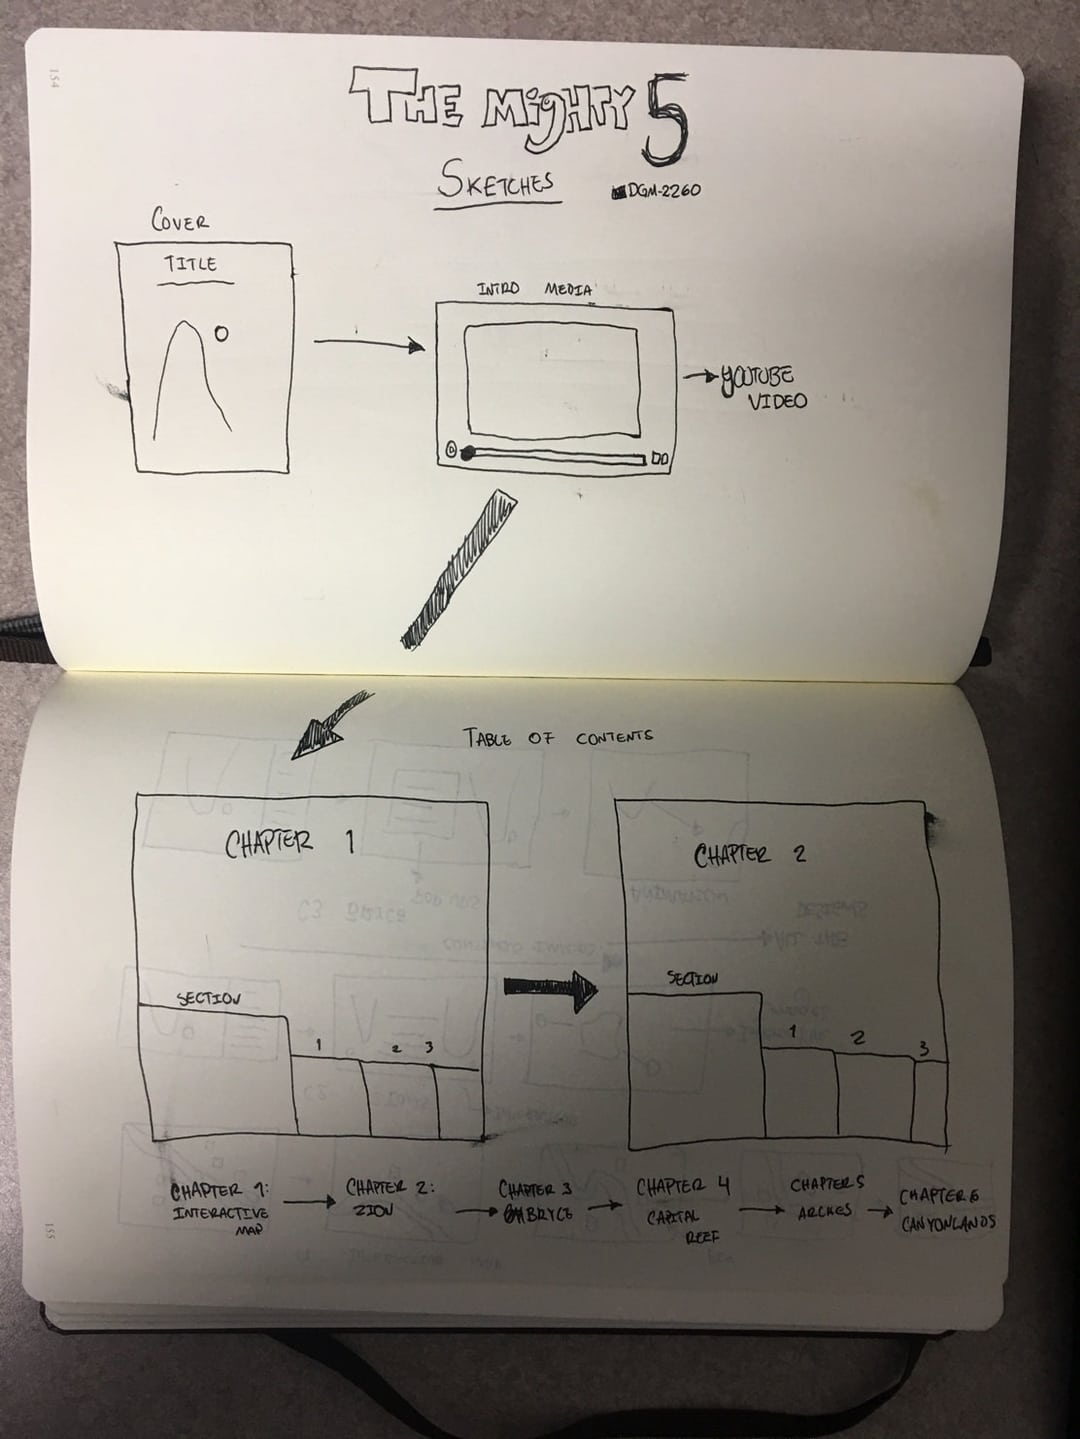 154
THE MigHTY 5
SKETCHES
DGM-2260
COVER
TITLE
INTRO MEDIA
YOUTUBE
VIDEO
TABLE OF CONTENTS
CHAPTER 1
SECTION
1 2 3
CHAPTER 2
SECTION
1 2 3
CHAPTER 1:
INTERACTIVE
MAP
CHAPTER 2:
ZION
CHAPTER 3
BRYCE
CHAPTER 4
CAPITAL
REEF
CHAPTER 5
ARCHES
CHAPTER 6
CANYONLANDS
155